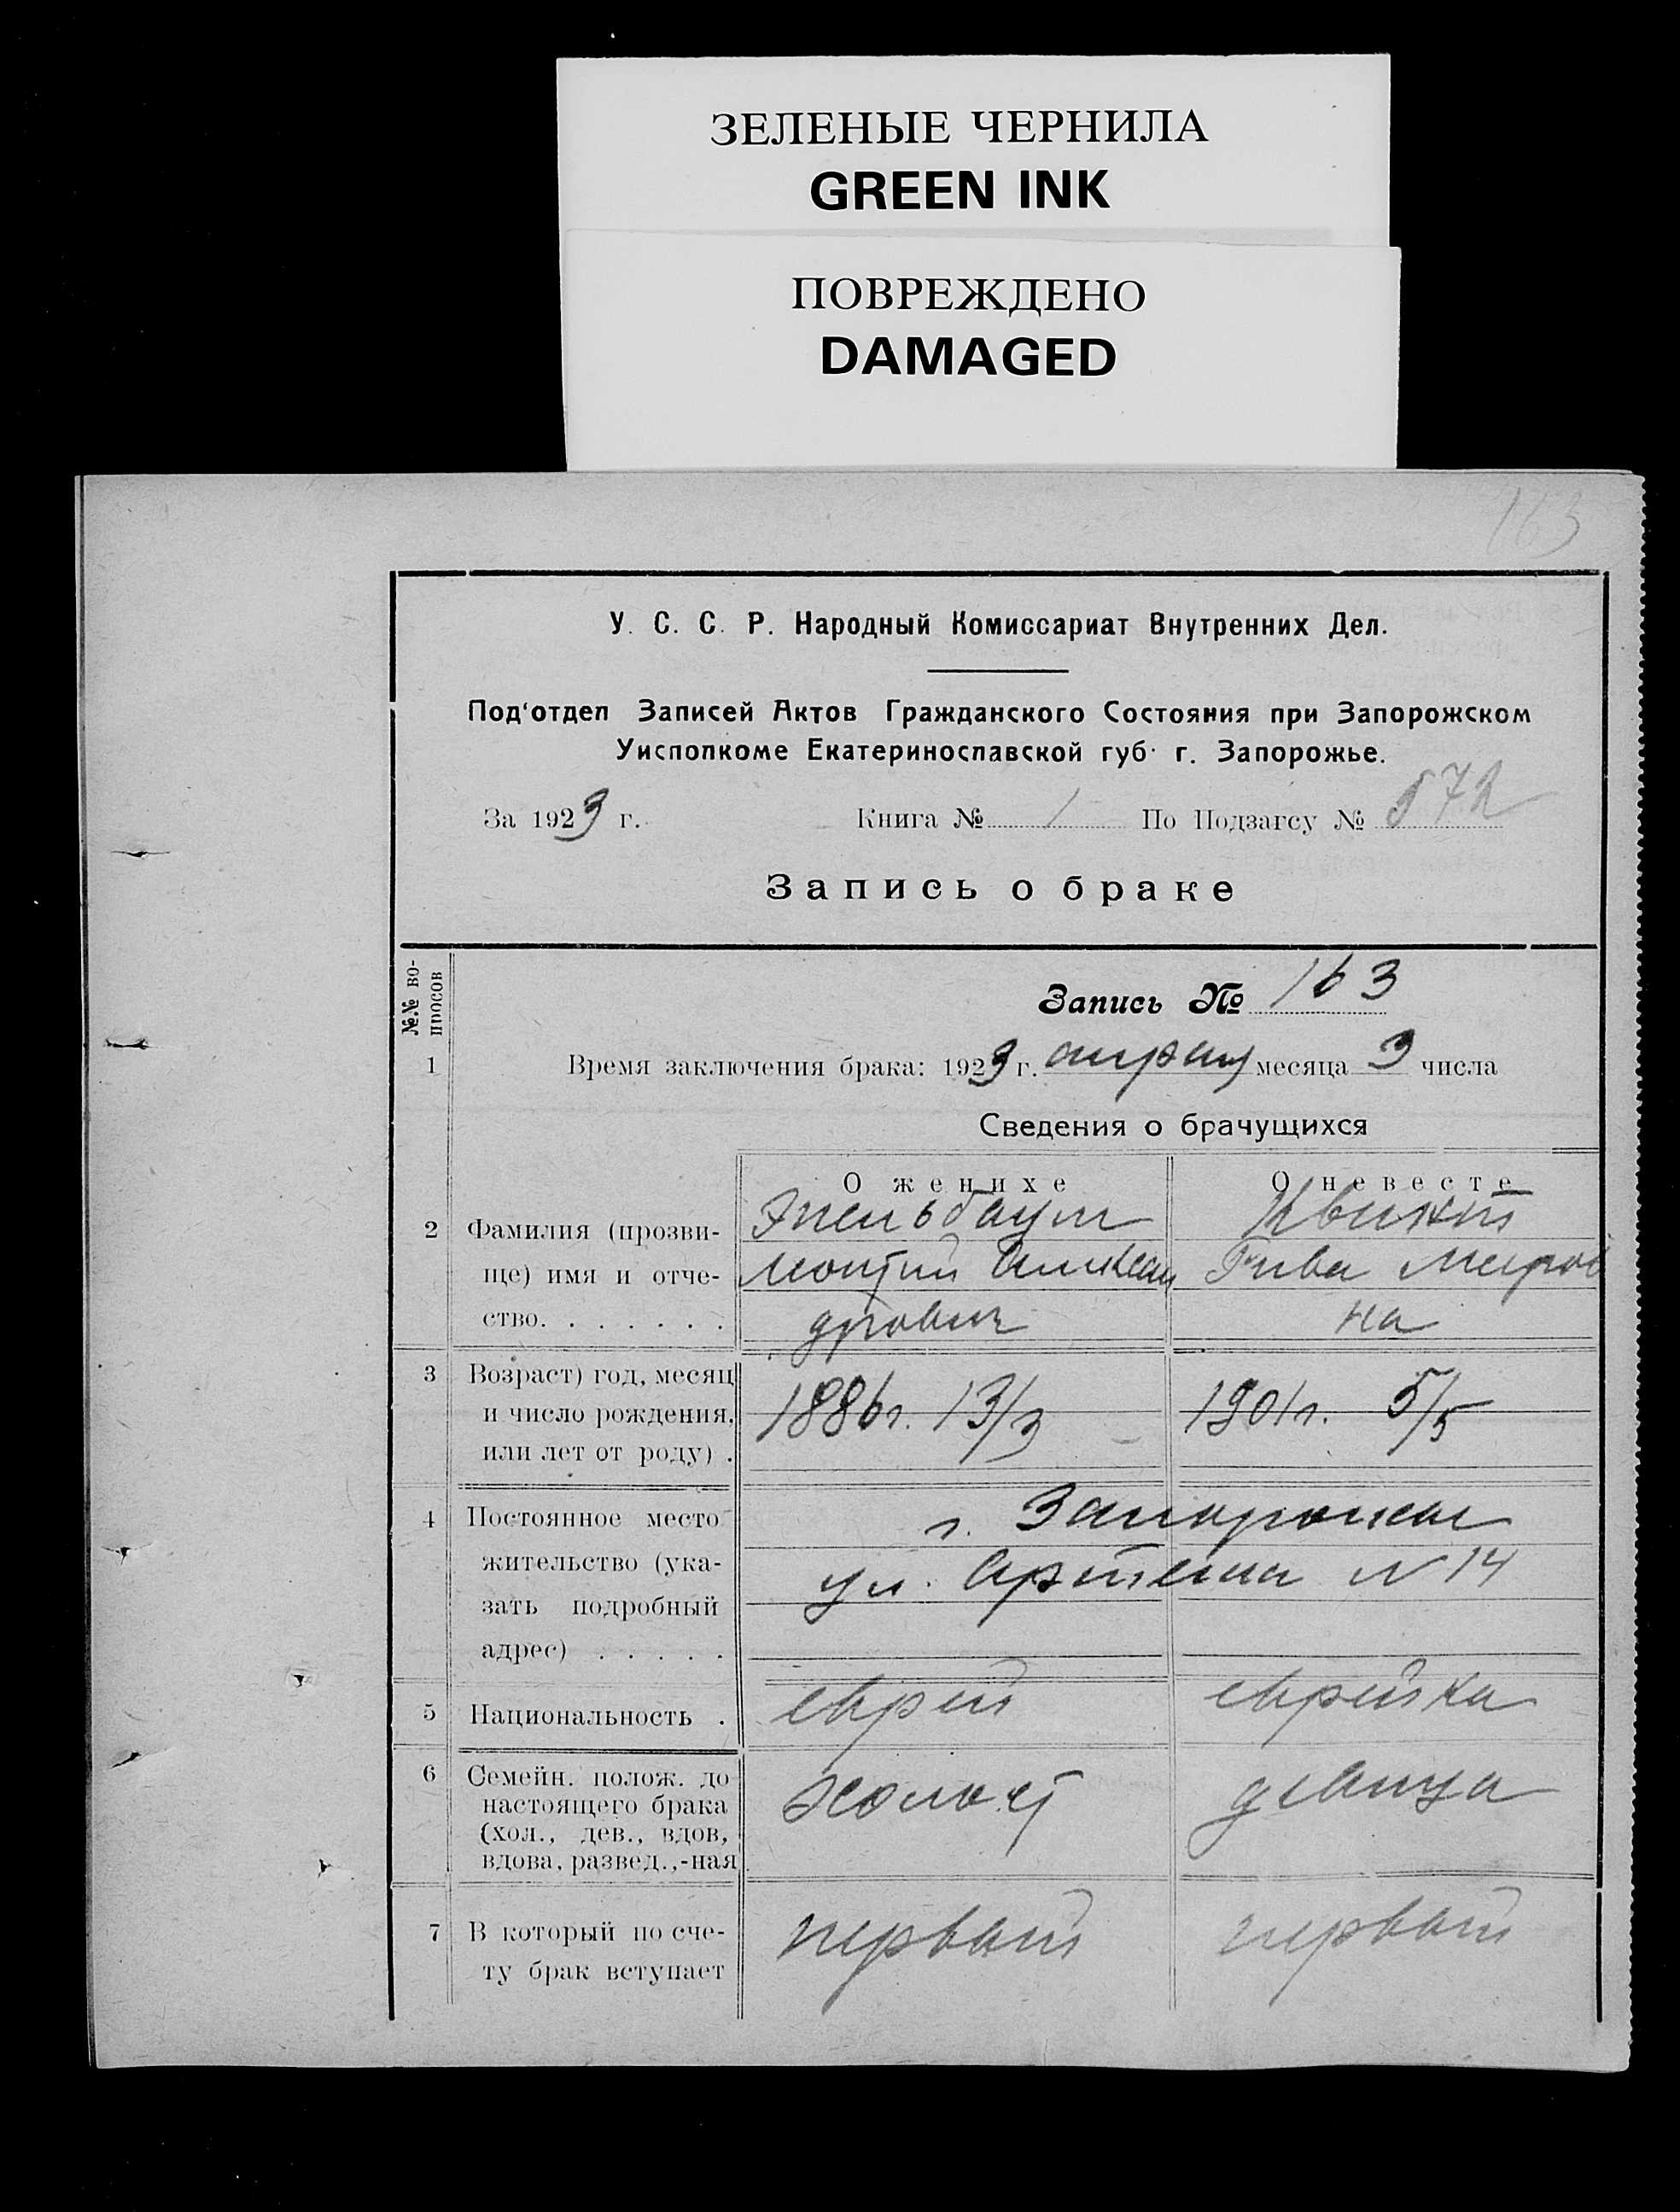 ЗЕЛЕНЫЕ ЧЕРНИЛА
GREEN INK
ПОВРЕЖДЕНО
DAMAGED
163
У. С. С. Р. Народный Комиссариат Внутренних Дел.
Под'отдел Записей Актов Гражданского Состояния при Запорожском
Уисполкоме Екатеринославской губ. г. Запорожье.
За 1923 г. Книга № 1 По Подзагсу № 572
Запись о браке
№№ во-
просов
Запись № 163
1 Время заключения брака: 1923 г. апреля месяца 3 числа
Сведения о брачущихся
О женихе О невесте
2 Фамилия (прозви-
ще) имя и отче-
ство. . . . . . .
Александ
дрович
Рива Меиров
на
3 Возраст) год, месяц
и число рождения,
или лет от роду) .
1886г. 13/3 1901г. 5/5
4 Постоянное место
жительство (ука-
зать подробный
адрес) . . . . .
г. Запорожье
ул. Артема N 14
5 Национальность . еврей еврейка
6 Семейн. полож. до
настоящего брака
(хол., дев., вдов,
вдова, развед.,-ная
холост девица
7 В который по сче-
ту брак вступает
первый первый